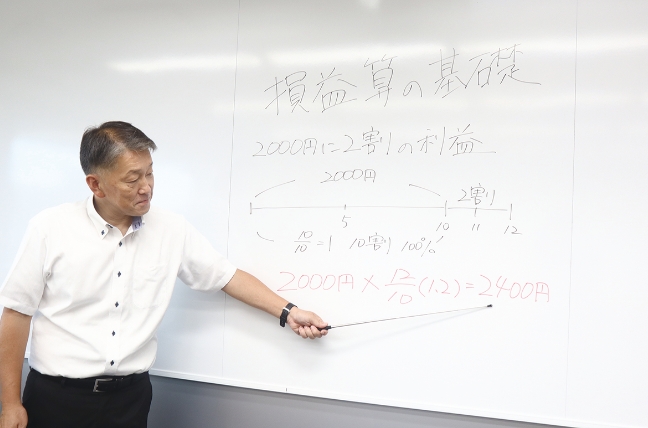 損益算の基礎
2000円に2割の利益
2000円 2割
5 10 11 12
10/10=1 10割 100%
2000円×12/10(1.2)=2400円